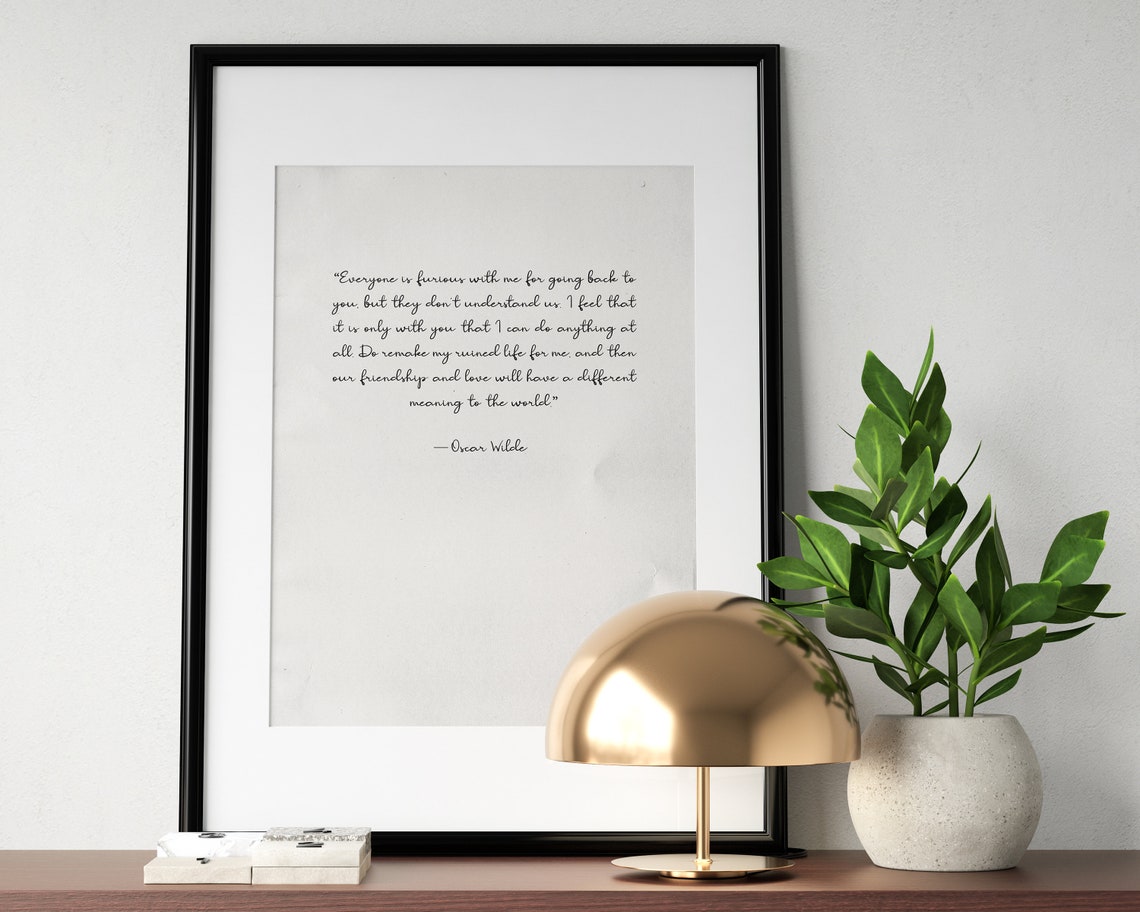 “Everyone is furious with me for going back to
you, but they don't understand us. I feel that
it is only with you that I can do anything at
all. Do remake my ruined life for me, and then
our friendship and love will have a different
meaning to the world.”
— Oscar Wilde